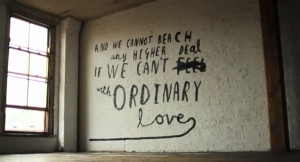 AND WE CANNOT REACH
any HIGHER DEAL
IF WE CAN'T FEEL
with ORDINARY
love